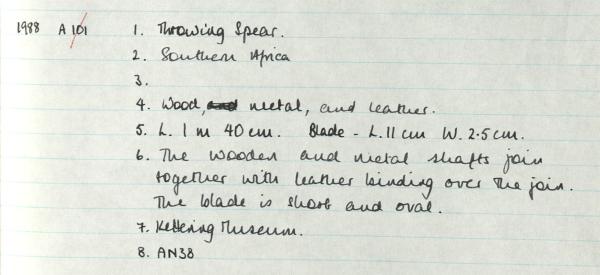 1988 A 101 1. Throwing Spear.
2. Southern Africa
3.
4. Wood, and metal, and leather.
5. L. 1 m 40 cm. Blade - L. 11 cm W. 2.5 cm.
6. The wooden and metal shafts join
together with leather binding over the join.
The blade is short and oval.
7. Kettering Museum.
8. AN38